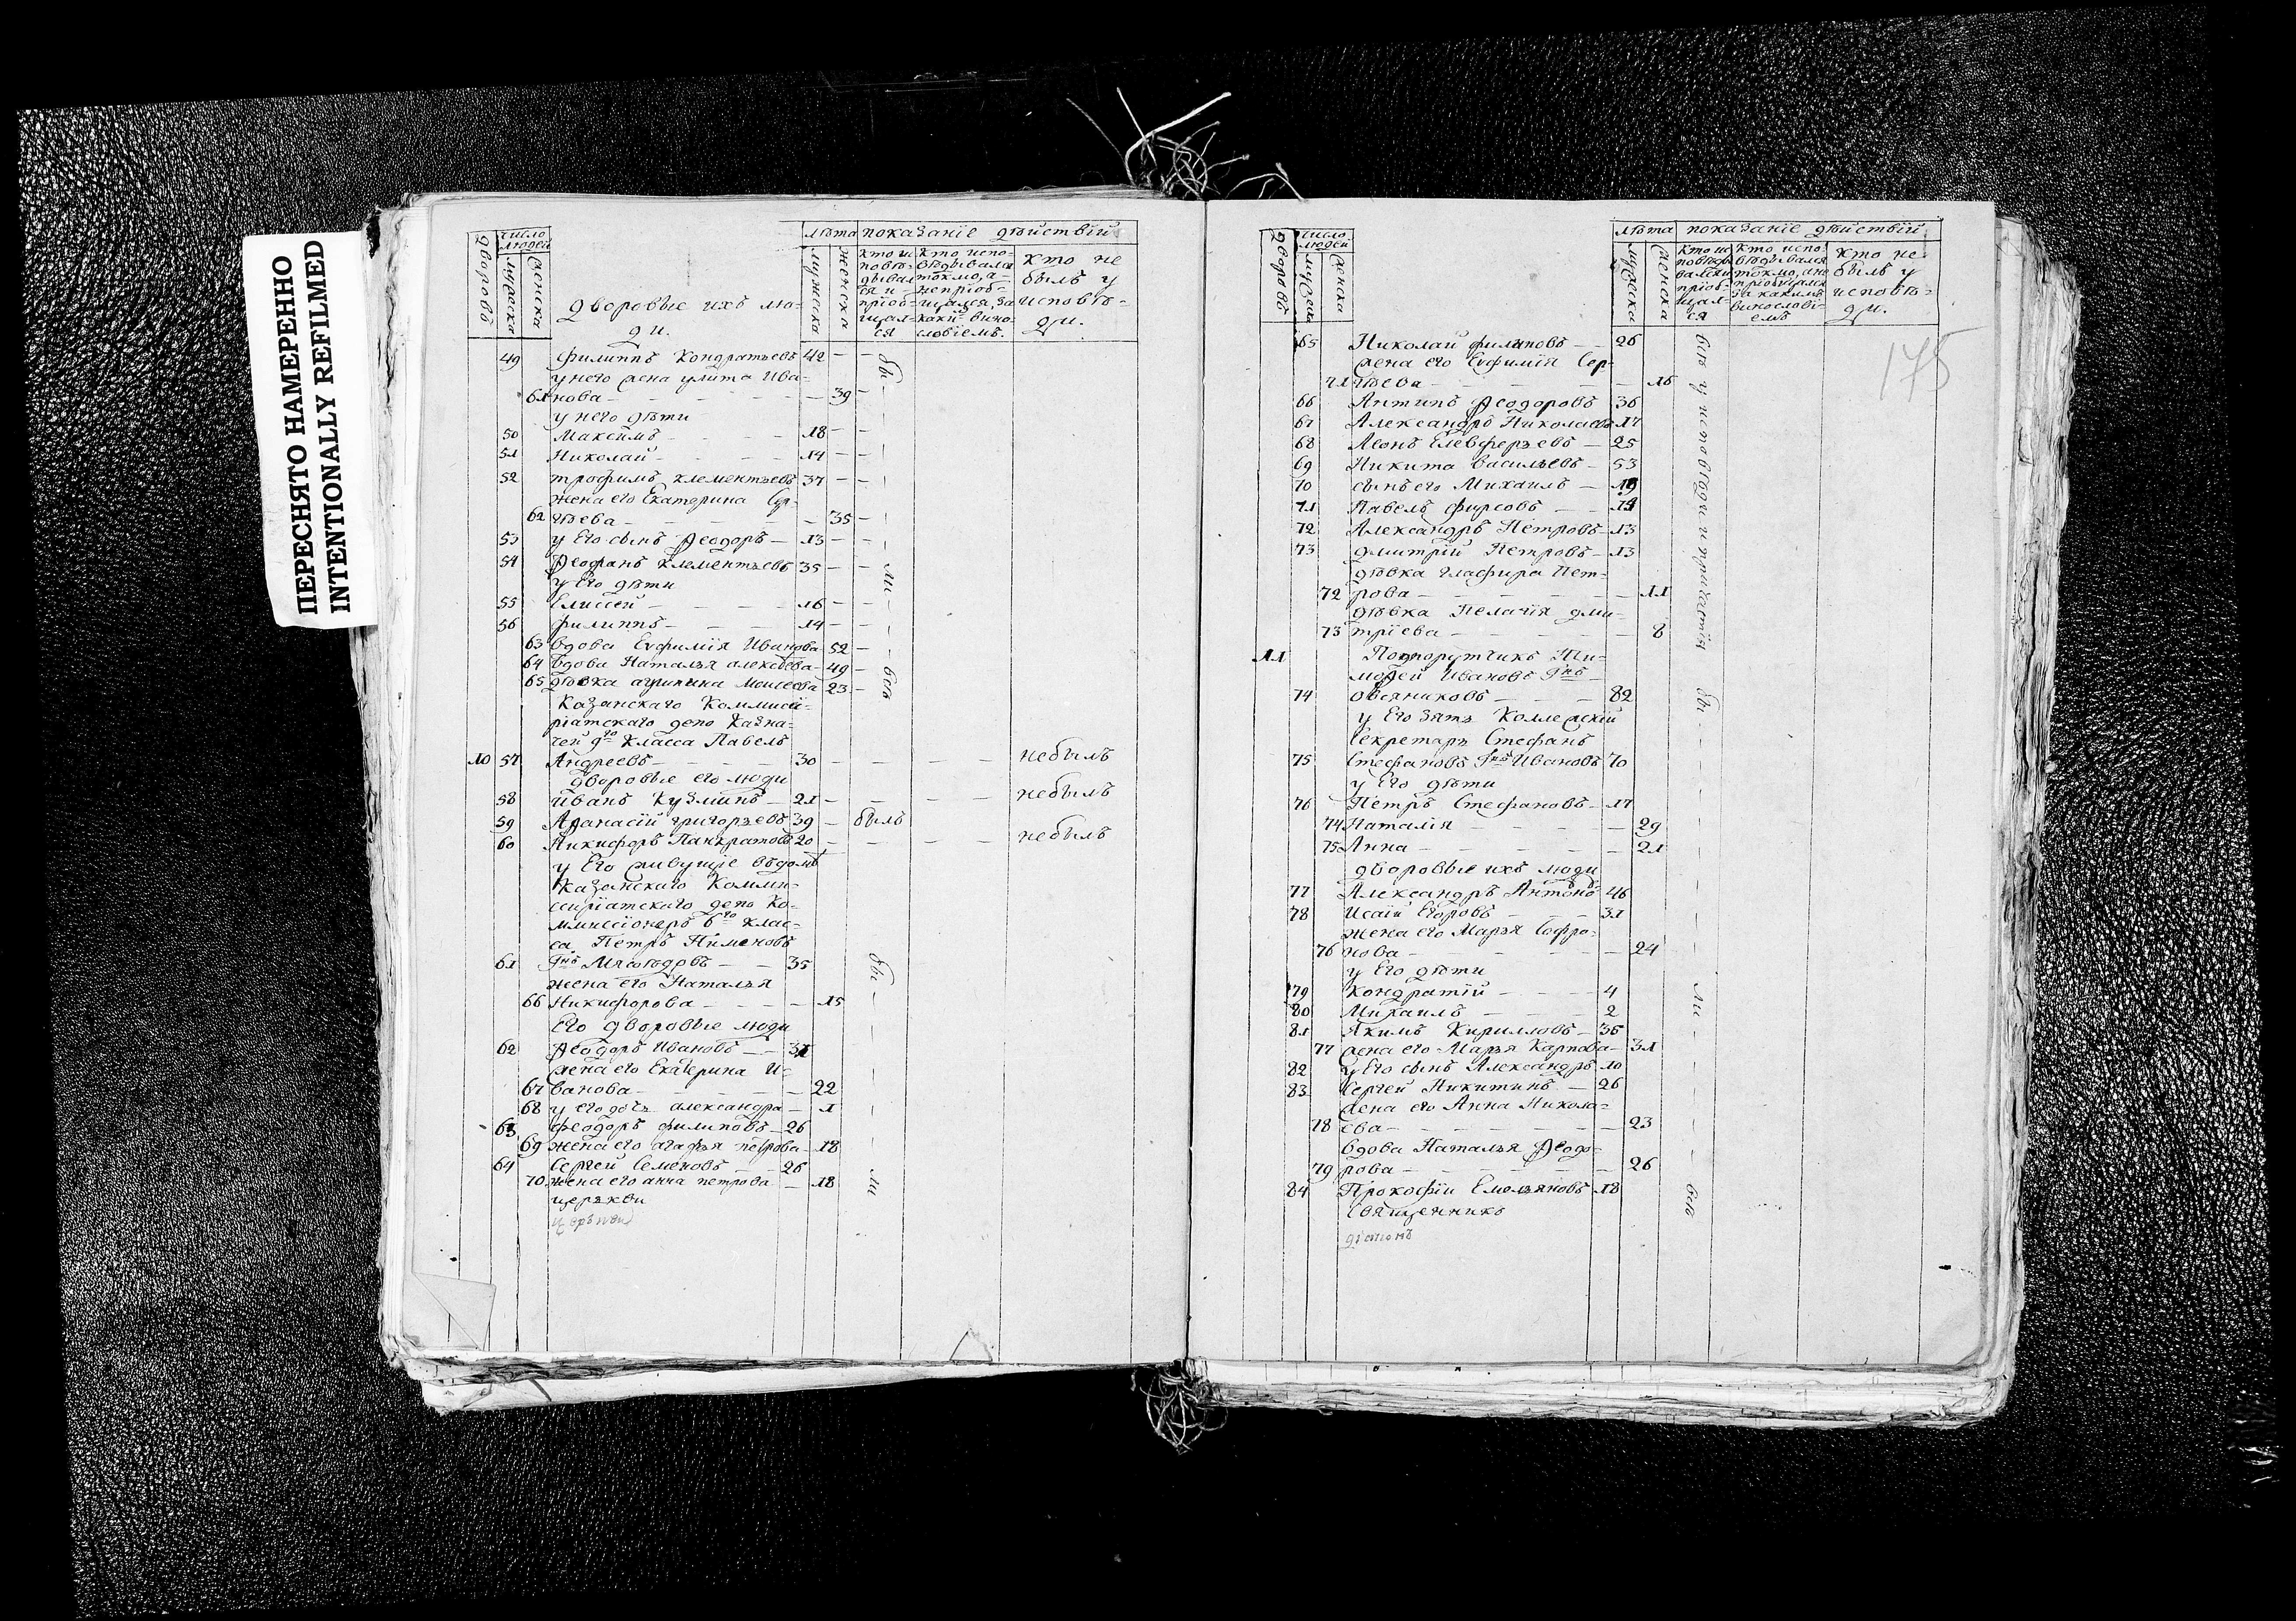 ПЕРЕСНЯТО НАМЕРЕННО
INTENTIONALLY REFILMED
дворовъ
число людей
мужеска
женска
дворовые ихъ лю-
ди.
лѣта
мужеска
женска
показанїе дѣйствїй
кто ис-
повѣ-
дывал
ся и
прїоб-
щал-
ся
кто испо-
вѣдывался
токмо, а
непрїоб-
щался, за
каки- вино-
словїемъ.
кто не
былъ у
исповѣ-
ди.
49 Филиппъ Кондратьевъ 42 — —
у него жена улита Ива-
61 нова — 39 —
у него дѣти
50 Максимъ — 18 — —
51 Николай — 14 — —
52 трофимъ клементьевъ 37 — —
жена его Екатерина Сер-
62 гѣева — 35 —
53 у Его сынъ Ѳеодоръ — 13 — —
54 Ѳеофанъ Клементьевъ 35 — —
у Его дѣти
55 Елисей — 16 —
56 филиппъ — 14 —
63 вдова Евфимїя Иванова 52 —
64 вдова Наталья алексѣева 49 —
65 дѣвка агрипина Моисеева 23 —
бы — ли — всѣ
Казанскаго Коммиси-
рїатскаго депо Казна-
чей 9го Класса Павелъ
10 57 Андреевъ — 30 — — — — небылъ
дворовые его люди
58 Иванъ Кузминъ — 21 — — — — небылъ
59 Аѳанасїй григорьевъ 39 — былъ
60 Никифоръ Панкратовъ 20 — — — — небылъ
у Его живущїе вѣдомъ
Казанскаго Комми-
сирїатскаго депо Ко-
ммиссїонеръ 6го клас-
са Петръ Пименовъ
61 гнъ — 35
жена его Наталья
66 Никифорова — 15
Его дворовые люди
62 Ѳеодоръ Ивановъ — 31
жена его Екатерина И-
67 ванова — 22
68 у его дочь александра — 1
63 феодоръ филиповъ — 26
69 жена его агафья петрова 18
64 Сергей Семеновъ — 26
70 жена его анна петрова — 18
бы — ли
церькви
дворовъ
число людей
мужеска
женска
лѣта
мужеска
женска
показанїе дѣйствїй
кто ис
повѣды
вался и
прїоб-
щал-
ся
кто испо-
вѣдывался
токмо, а не
прїобщался
за какимъ
винословї-
емъ
кто не
былъ у
исповѣ-
ди.
175
65 Николай филиповъ — 26
жена его Евфимїя Сер-
71 гѣева — 16
66 Антипъ Ѳеодоровъ 36
67 Александръ Николаевъ 17
68 Леонъ Елевферьевъ — 25
69 Никита Васильевъ — 53
70 сынъ его Михаилъ —
71 Павелъ фирсовъ —
72 Александръ Петровъ 13
73 дмитрїй Петровъ — 13
дѣвка глафира Пет-
72 рова — 11
дѣвка Пелагїя дми-
73 трїева — 8
11 Подпорутчикъ Ти-
моѳей Ивановъ гнъ
74 Овсяниковъ — 82
у Его зять Коллежскїй
секретарь Стефанъ
75 Стефановъ гнъ Ивановъ 70
у Его дѣти
76 Петръ Стефановъ — 17
74 Наталїя — 29
75 Анна — 21
дворовые ихъ люди
77 Александръ Антоновъ 46
78 Исаїй Егоровъ — 31
жена его Марья Софро-
76 нова — 24
у Его дѣти
79 Кондратїй — 4
80 Михаилъ — 2
81 Якимъ Кирилловъ — 36
77 жена его Марья Карпова — 31
82 у Его сынъ Александръ 10
83 Сергей Никитинъ — 26
жена его Анна Никола-
78 ева — 23
вдова Наталья Ѳеодо-
79 рова — 26
84 Прокофїи Емельяновъ 18
всѣ у исповѣди и причастїя бы — ли — всѣ
священникъ